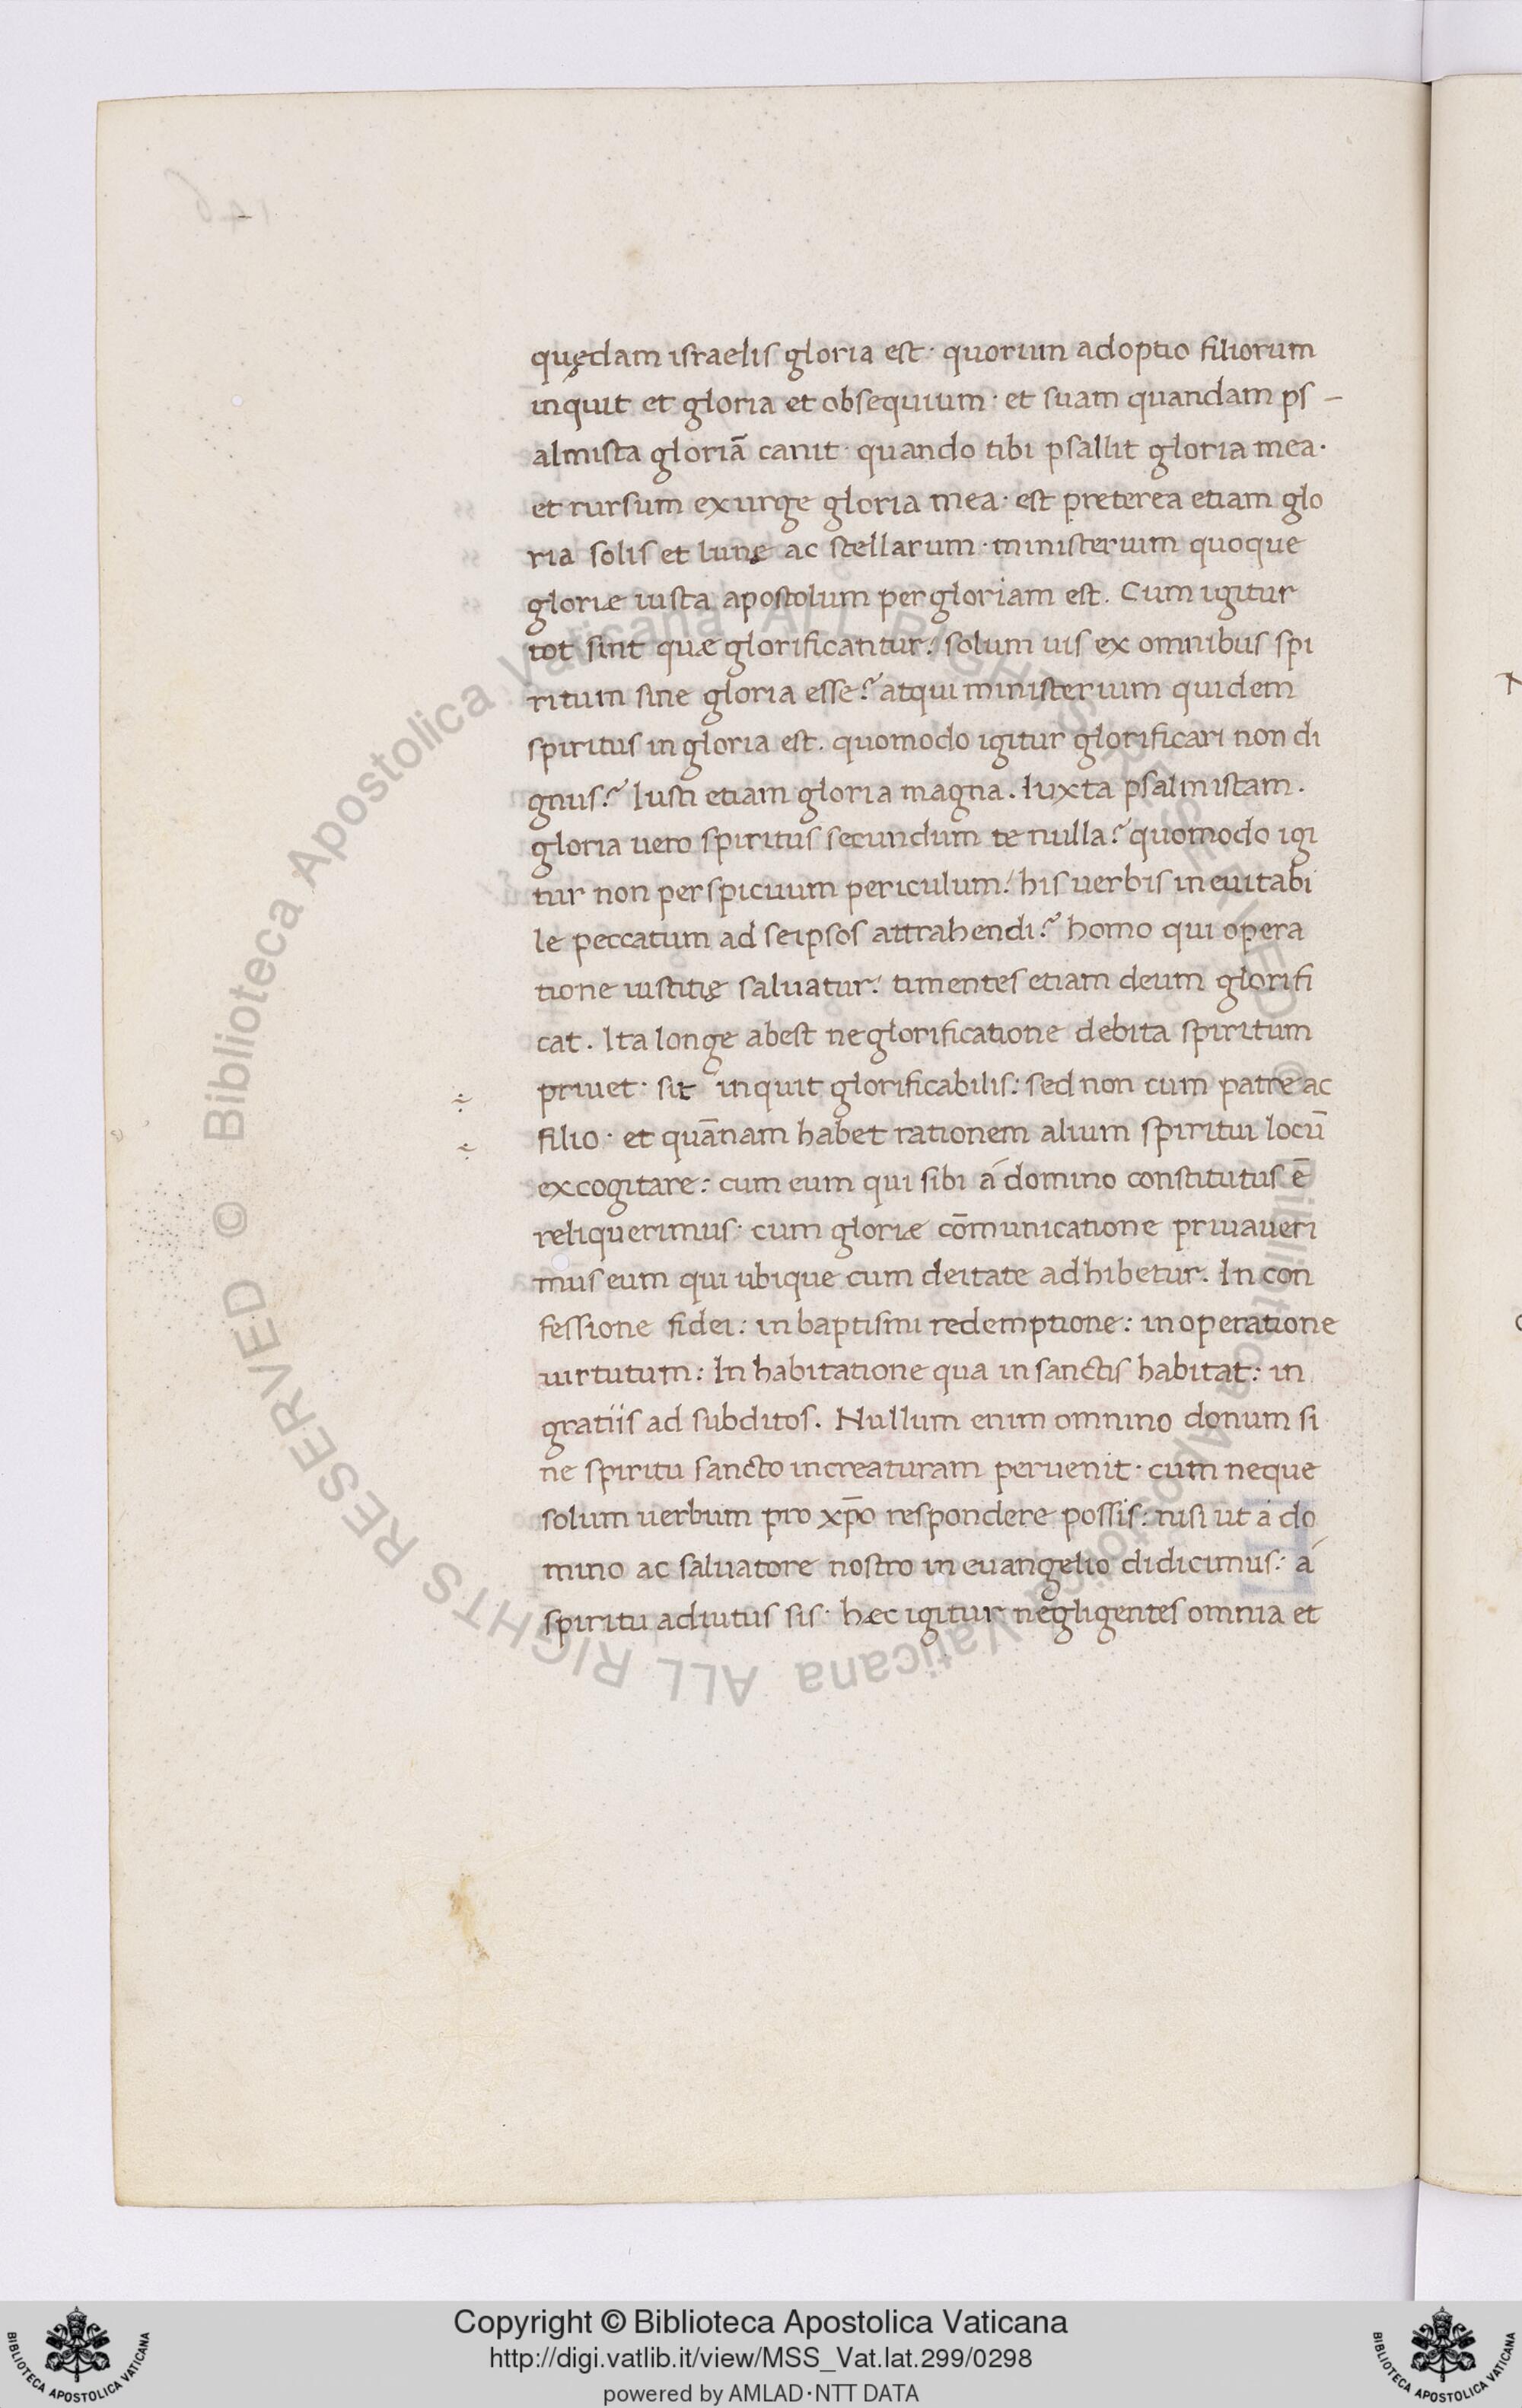 quędam israelis gloria est· quorum adoptio filiorum
inquit et gloria et obsequium· et suam quandam ps-
almista gloriā canit· quando tibi psallit gloria mea·
et rursum exurge gloria mea· est preterea etiam glo
ria solis et lunę ac stellarum· ministerium quoque
gloriæ iusta apostolum per gloriam est. Cum igitur
tot sint quæ glorificantur: solum uis ex omnibus spi
ritum sine gloria esse? atqui ministerium quidem
spiritus in gloria est. quomodo igitur glorificari non di
gnus? Iusti etiam gloria magna. Iuxta psalmistam.
gloria uero spiritus secundum te nulla? quomodo igi
tur non perspicuum periculum: his uerbis ineuitabi
le peccatum ad seipsos attrahendi? homo qui opera
tione iustitię saluatur: timentes etiam deum glorifi
cat. Ita longe abest ne glorificatione debita spiritum
priuet· sit inquit glorificabilis: sed non cum patre ac
filio· et quānam habet rationem alium spiritui locū
excogitare: cum eum qui sibi á domino constitutus ē
reliquerimus· cum gloriæ cōmunicatione priuaueri
mus eum qui ubique cum deitate adhibetur. In con
fessione fidei: in baptismi redemptione: in operatione
uirtutum: In habitatione qua in sanctis habitat: in
gratiis ad subditos. Nullum enim omnino donum si
ne spiritu sancto in creaturam peruenit· cum neque
solum uerbum pro xp̄o respondere possis: nisi ut á do
mino ac saluatore nostro in euangelio didicimus: á
spiritu adiutus sis· hæc igitur negligentes omnia et
Biblioteca Apostolica Vaticana ALL RIGHTS RESERVED ©
Biblioteca Apostolica Vaticana ALL RIGHTS RESERVED ©
Copyright © Biblioteca Apostolica Vaticana
http://digi.vatlib.it/view/MSS_Vat.lat.299/0298
powered by AMLAD·NTT DATA
BIBLIOTECA APOSTOLICA VATICANA
BIBLIOTECA APOSTOLICA VATICANA